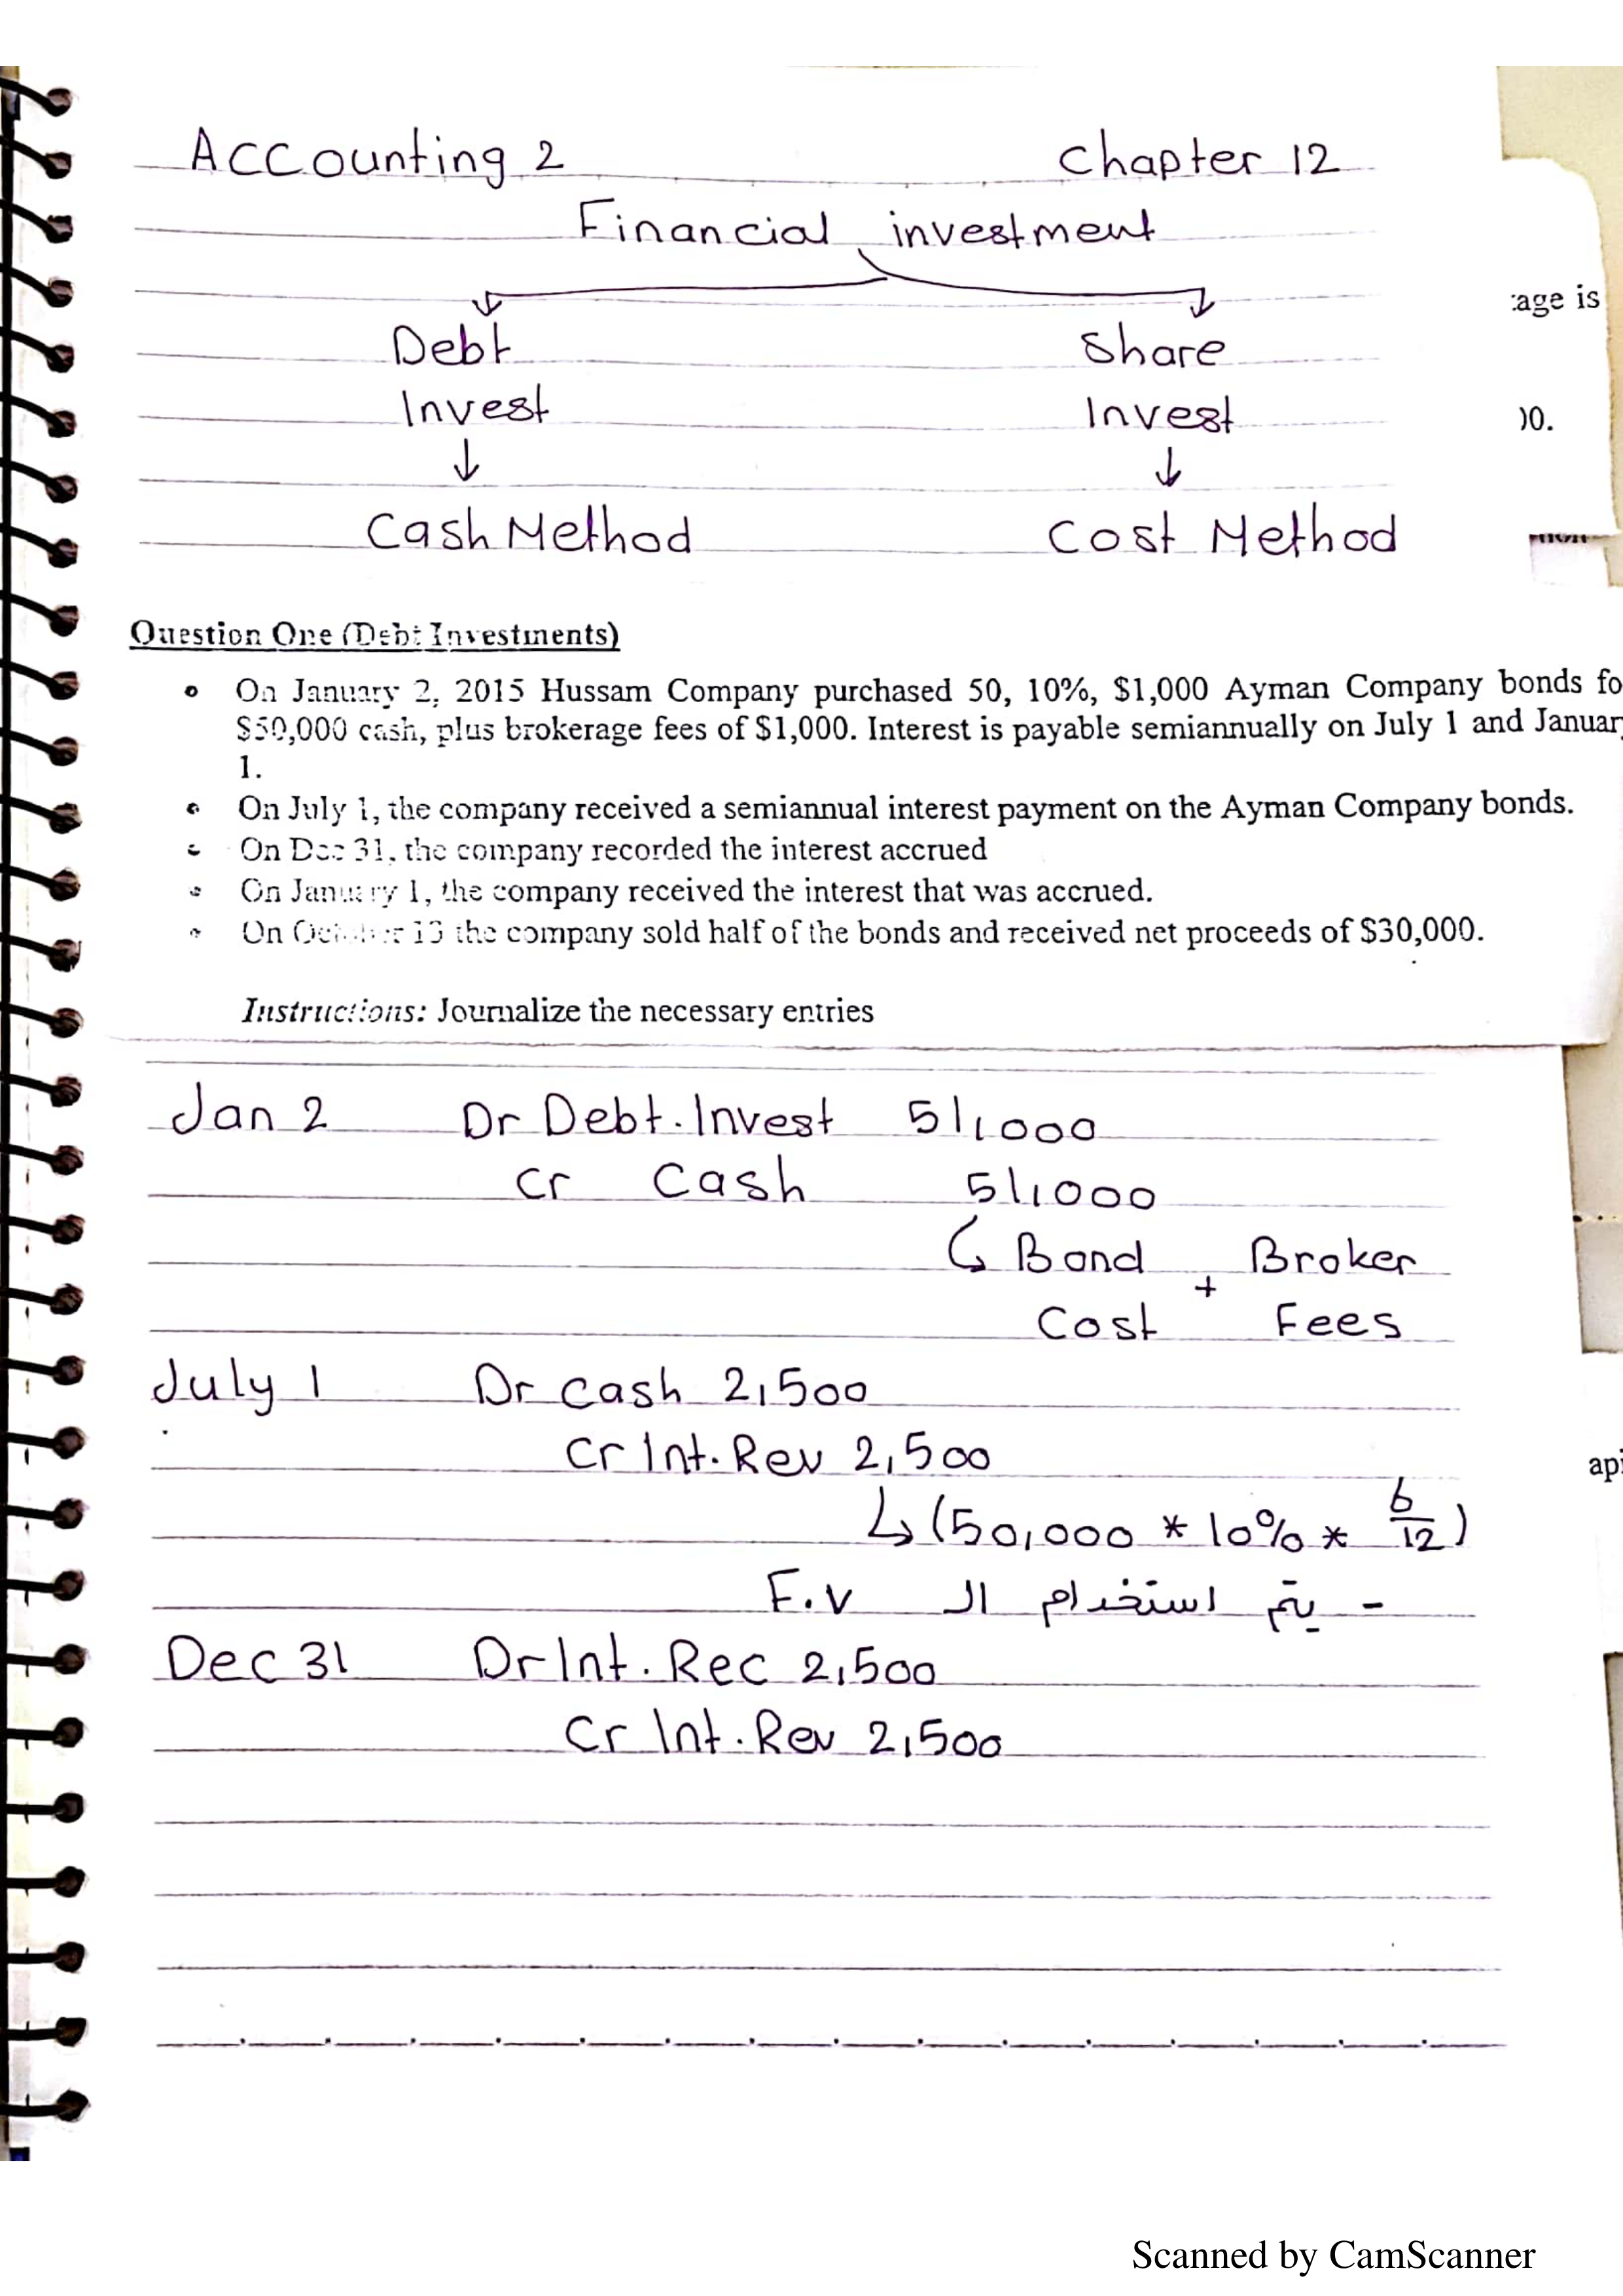 Accounting 2 Chapter 12
Financial investment
Debt Share
Invest Invest
↓ ↓
Cash Method Cost Method
:age is
00.
Question One (Debt Investments)
• On January 2, 2015 Hussam Company purchased 50, 10%, $1,000 Ayman Company bonds fo
$50,000 cash, plus brokerage fees of $1,000. Interest is payable semiannually on July 1 and Januar
1.
• On July 1, the company received a semiannual interest payment on the Ayman Company bonds.
• On Dec 31, the company recorded the interest accrued
• On January 1, the company received the interest that was accrued.
• On October the company sold half of the bonds and received net proceeds of $30,000.
Instructions: Journalize the necessary entries
Jan 2 Dr Debt.Invest 51,000
Cr Cash 51,000
Bond + Broker
Cost Fees
July 1 Dr Cash 2,500
Cr Int.Rev 2,500
api
↳ (50,000 * 10% * 6/12)
- يتم استخدام ال F.V
Dec 31 Dr Int.Rec 2,500
Cr Int.Rev 2,500
Scanned by CamScanner